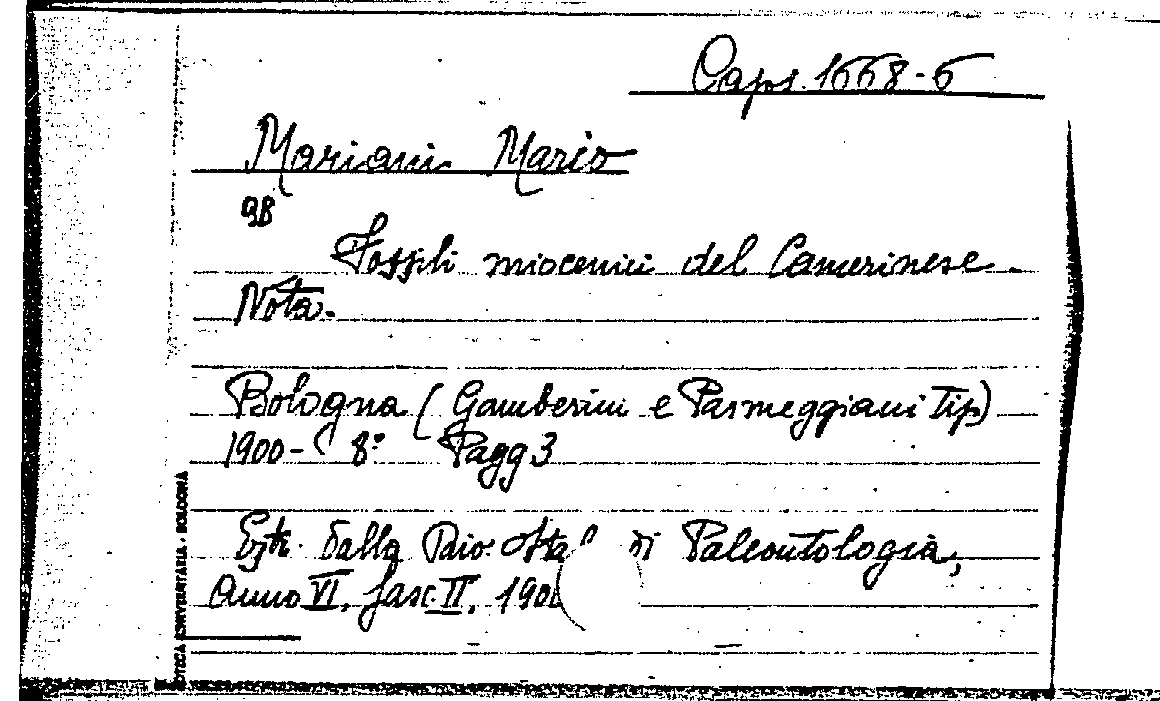 Caps. 1668-6
Mariani Mario
9B
Fossili miocenici del Camerinese.
Nota.
Bologna (Gamberini e Parmeggiani Tip)
1900- 8° Pagg 3
Estr. dalla di Paleontologia,
Anno VI, fasc. II,
BOLOGNA